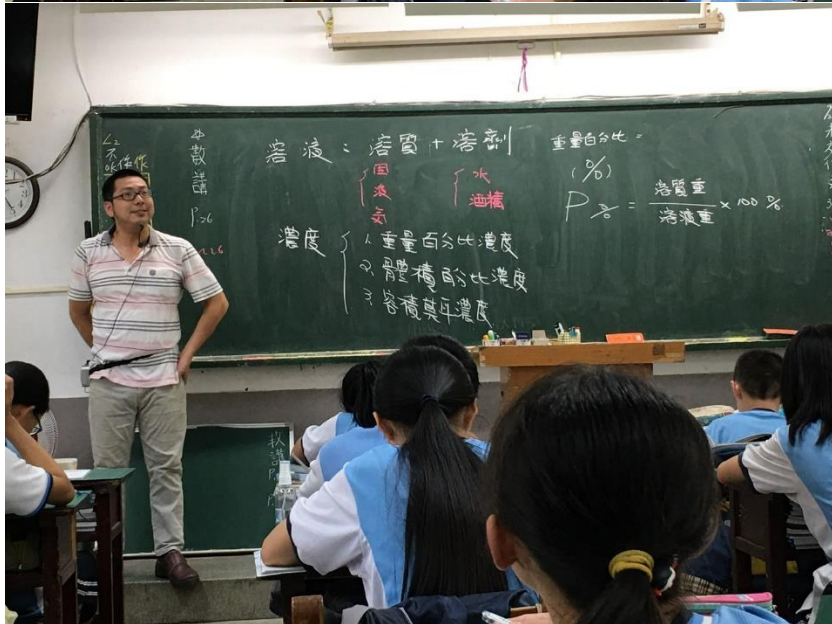 L2
不
能
作
散
講
P.26
溶液 = 溶質 + 溶劑
固
液
氣
水
酒精
濃度
1. 重量百分比濃度
2. 體積百分比濃度
3. 容積莫耳濃度
重量百分比 =
(%)
P% = 溶質重 / 溶液重 × 100 %